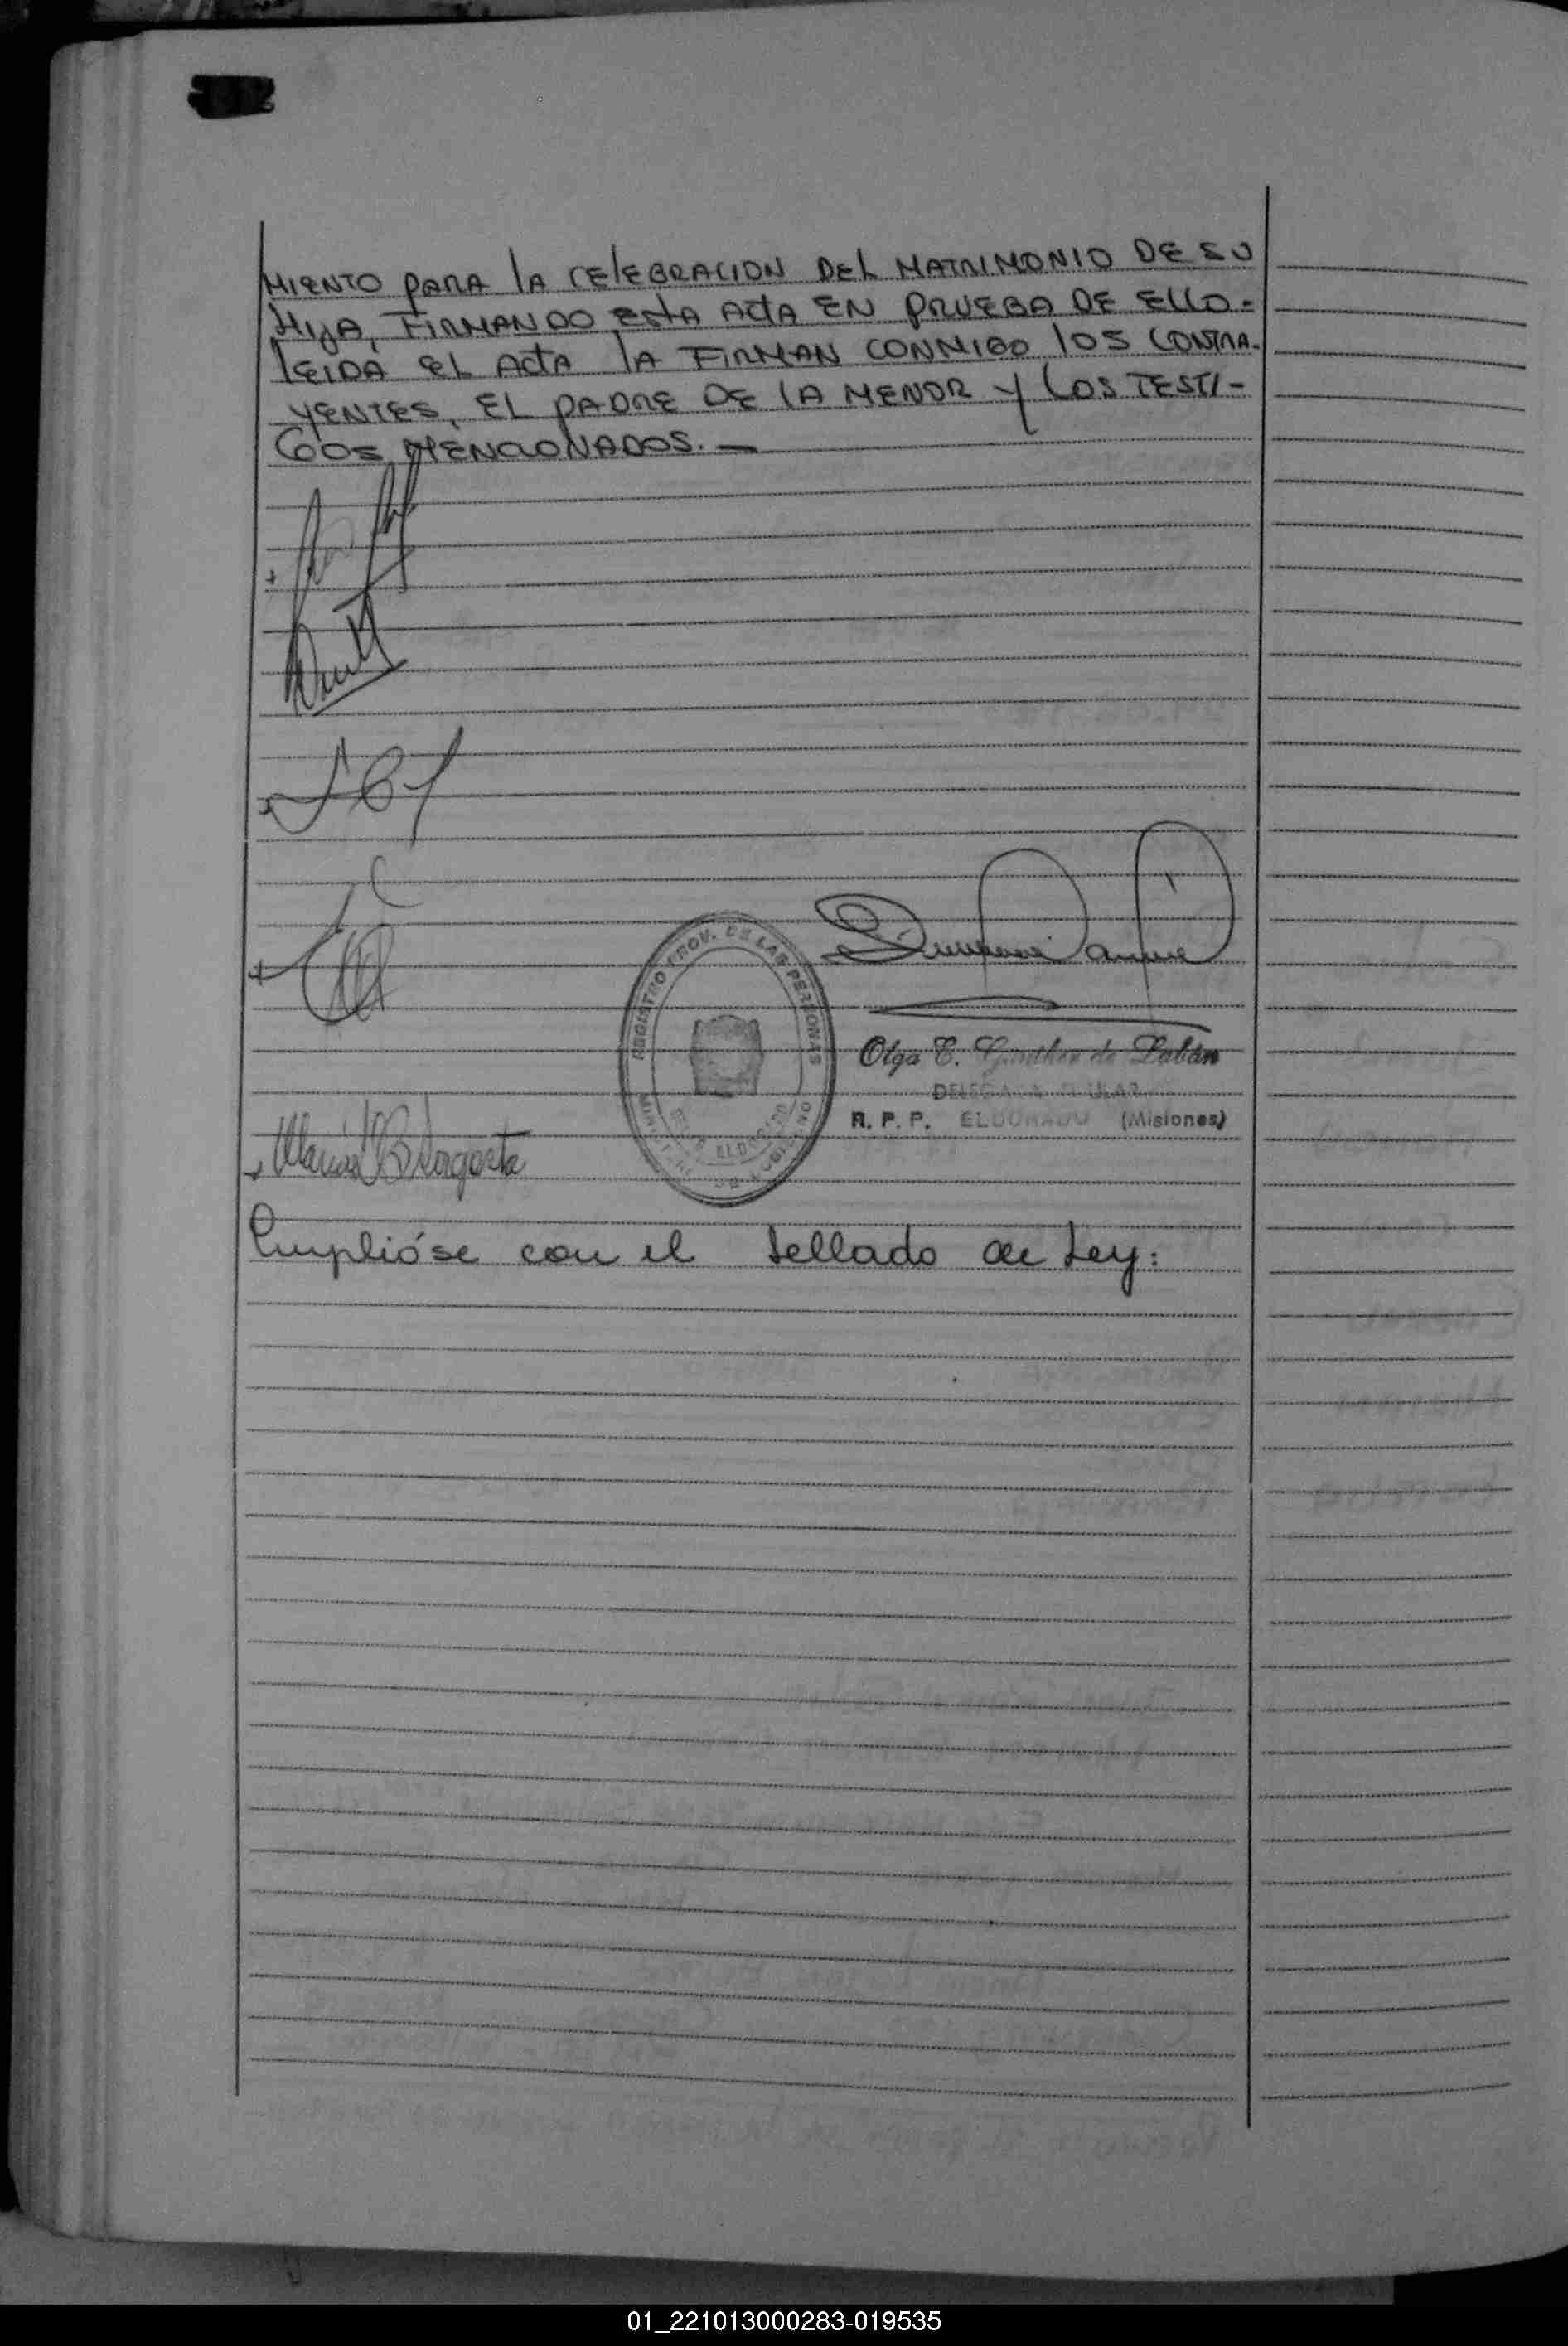 MIENTO PARA LA CELEBRACION DEL MATRIMONIO DE SU
HIJA, FIRMANDO ESTA ACTA EN PRUEBA DE ELLO.=
LEIDA EL ACTA LA FIRMAN CONMIGO LOS CONTRA-
YENTES, EL PADRE DE LA MENOR Y LOS TESTI-
GOS MENCIONADOS. —
REGISTRO PROV. DE LAS PERSONAS
ELDORADO
Olga E. Günther de
DELEGADA TITULAR
R. P. P. ELDORADO (Misiones)
Cumplióse con el sellado de Ley:
01_221013000283-019535